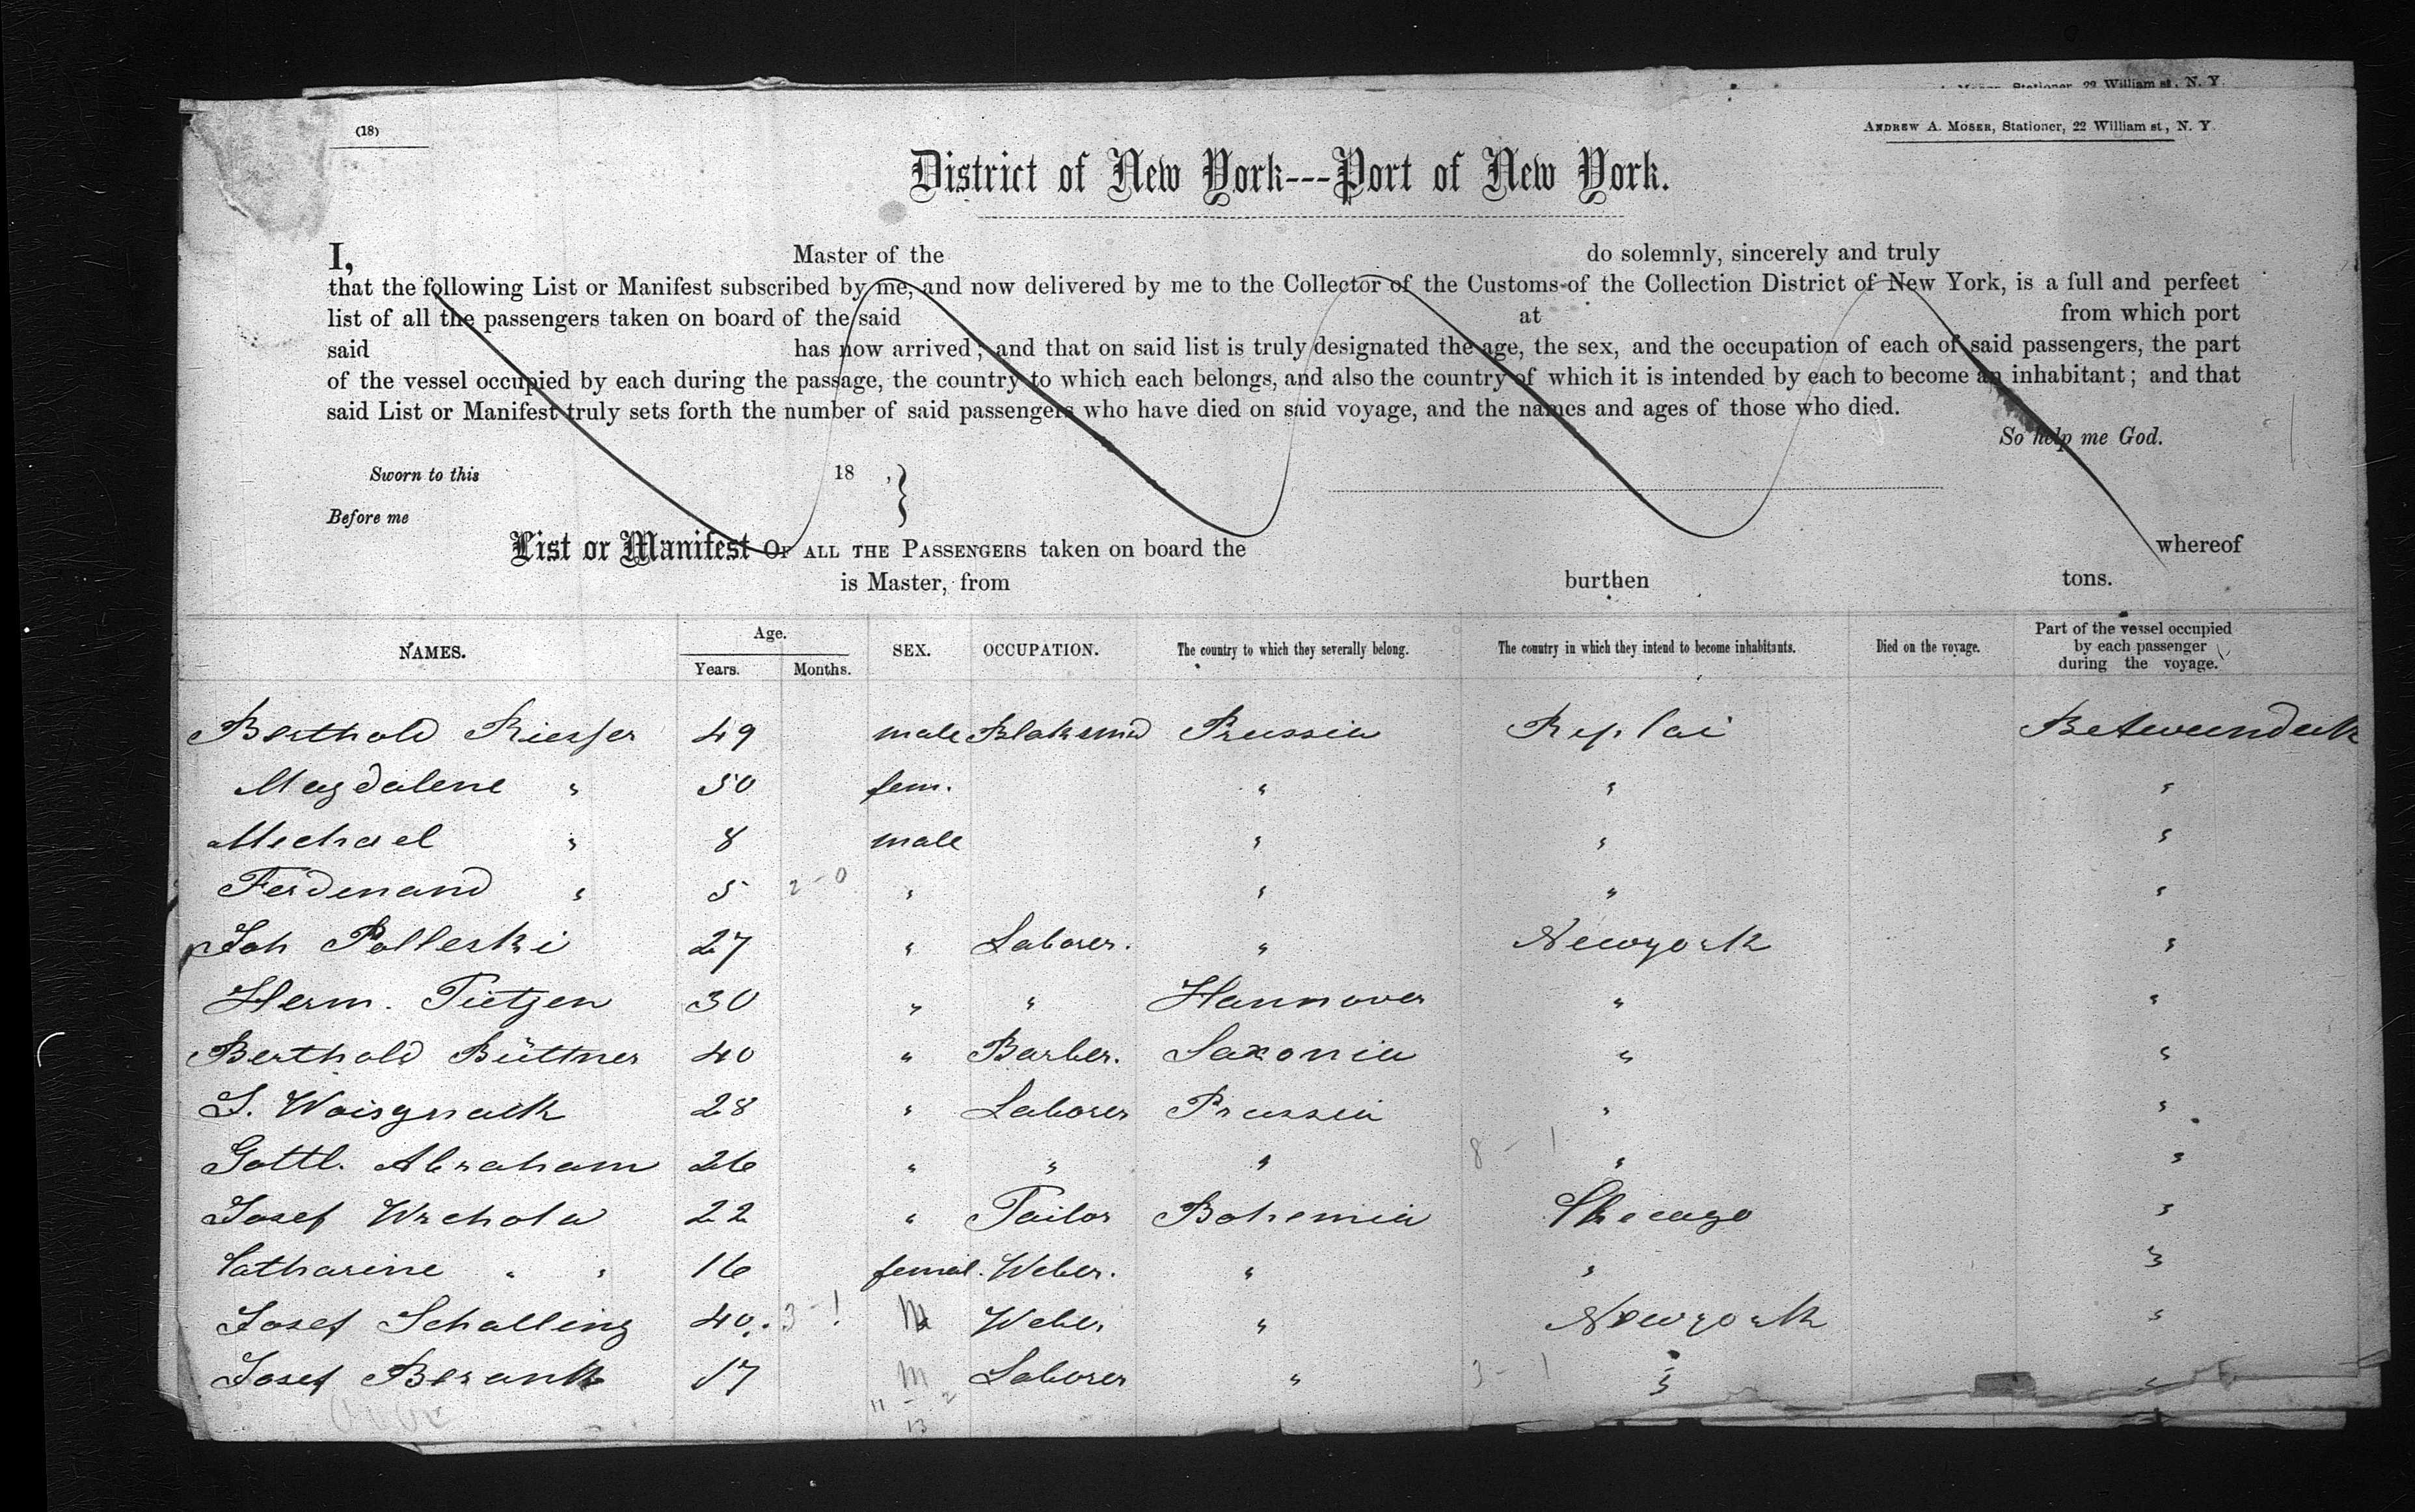 Moser, Stationer, 22 William st, N. Y.
(18)
Andrew A. Moser, Stationer, 22 William st, N. Y.
District of New York---Port of New York.
I, Master of the do solemnly, sincerely and truly
that the following List or Manifest subscribed by me, and now delivered by me to the Collector of the Customs of the Collection District of New York, is a full and perfect
list of all the passengers taken on board of the said at from which port
said has now arrived; and that on said list is truly designated the age, the sex, and the occupation of each of said passengers, the part
of the vessel occupied by each during the passage, the country to which each belongs, and also the country of which it is intended by each to become an inhabitant; and that
said List or Manifest truly sets forth the number of said passengers who have died on said voyage, and the names and ages of those who died.
So help me God.
Sworn to this 18 , }
Before me
List or Manifest OF ALL THE PASSENGERS taken on board the whereof
is Master, from burthen tons.
NAMES. Age. Years. Months. SEX. OCCUPATION. The country to which they severally belong. The country in which they intend to become inhabitants. Died on the voyage. Part of the vessel occupied by each passenger during the voyage.
Berthold Riesser 49 male Blaksmid Prussia Betweendeck
Magdalene " 50 fem. " " "
Michael " 8 male " " "
Ferdenand " 5 2-0 " " " "
Joh Polleski 27 " Laborer. " Newyork "
Herm. Tietzen 30 " " Hannover " "
Berthold Büttner 40 " Barber. Saxonia " "
Laborer Prussia 28 " " "
Gottl. Abraham 26 " " " 8-1 " "
Josef Wrchota 22 " Tailor Bohemia Chicago "
Catharine " " 16 femal. Weber. " " "
Josef Schalling 40. 3-1 M Weber " Newyork "
Josef Berank 17 m Laborer " 3-1 " "
11-2
13
over